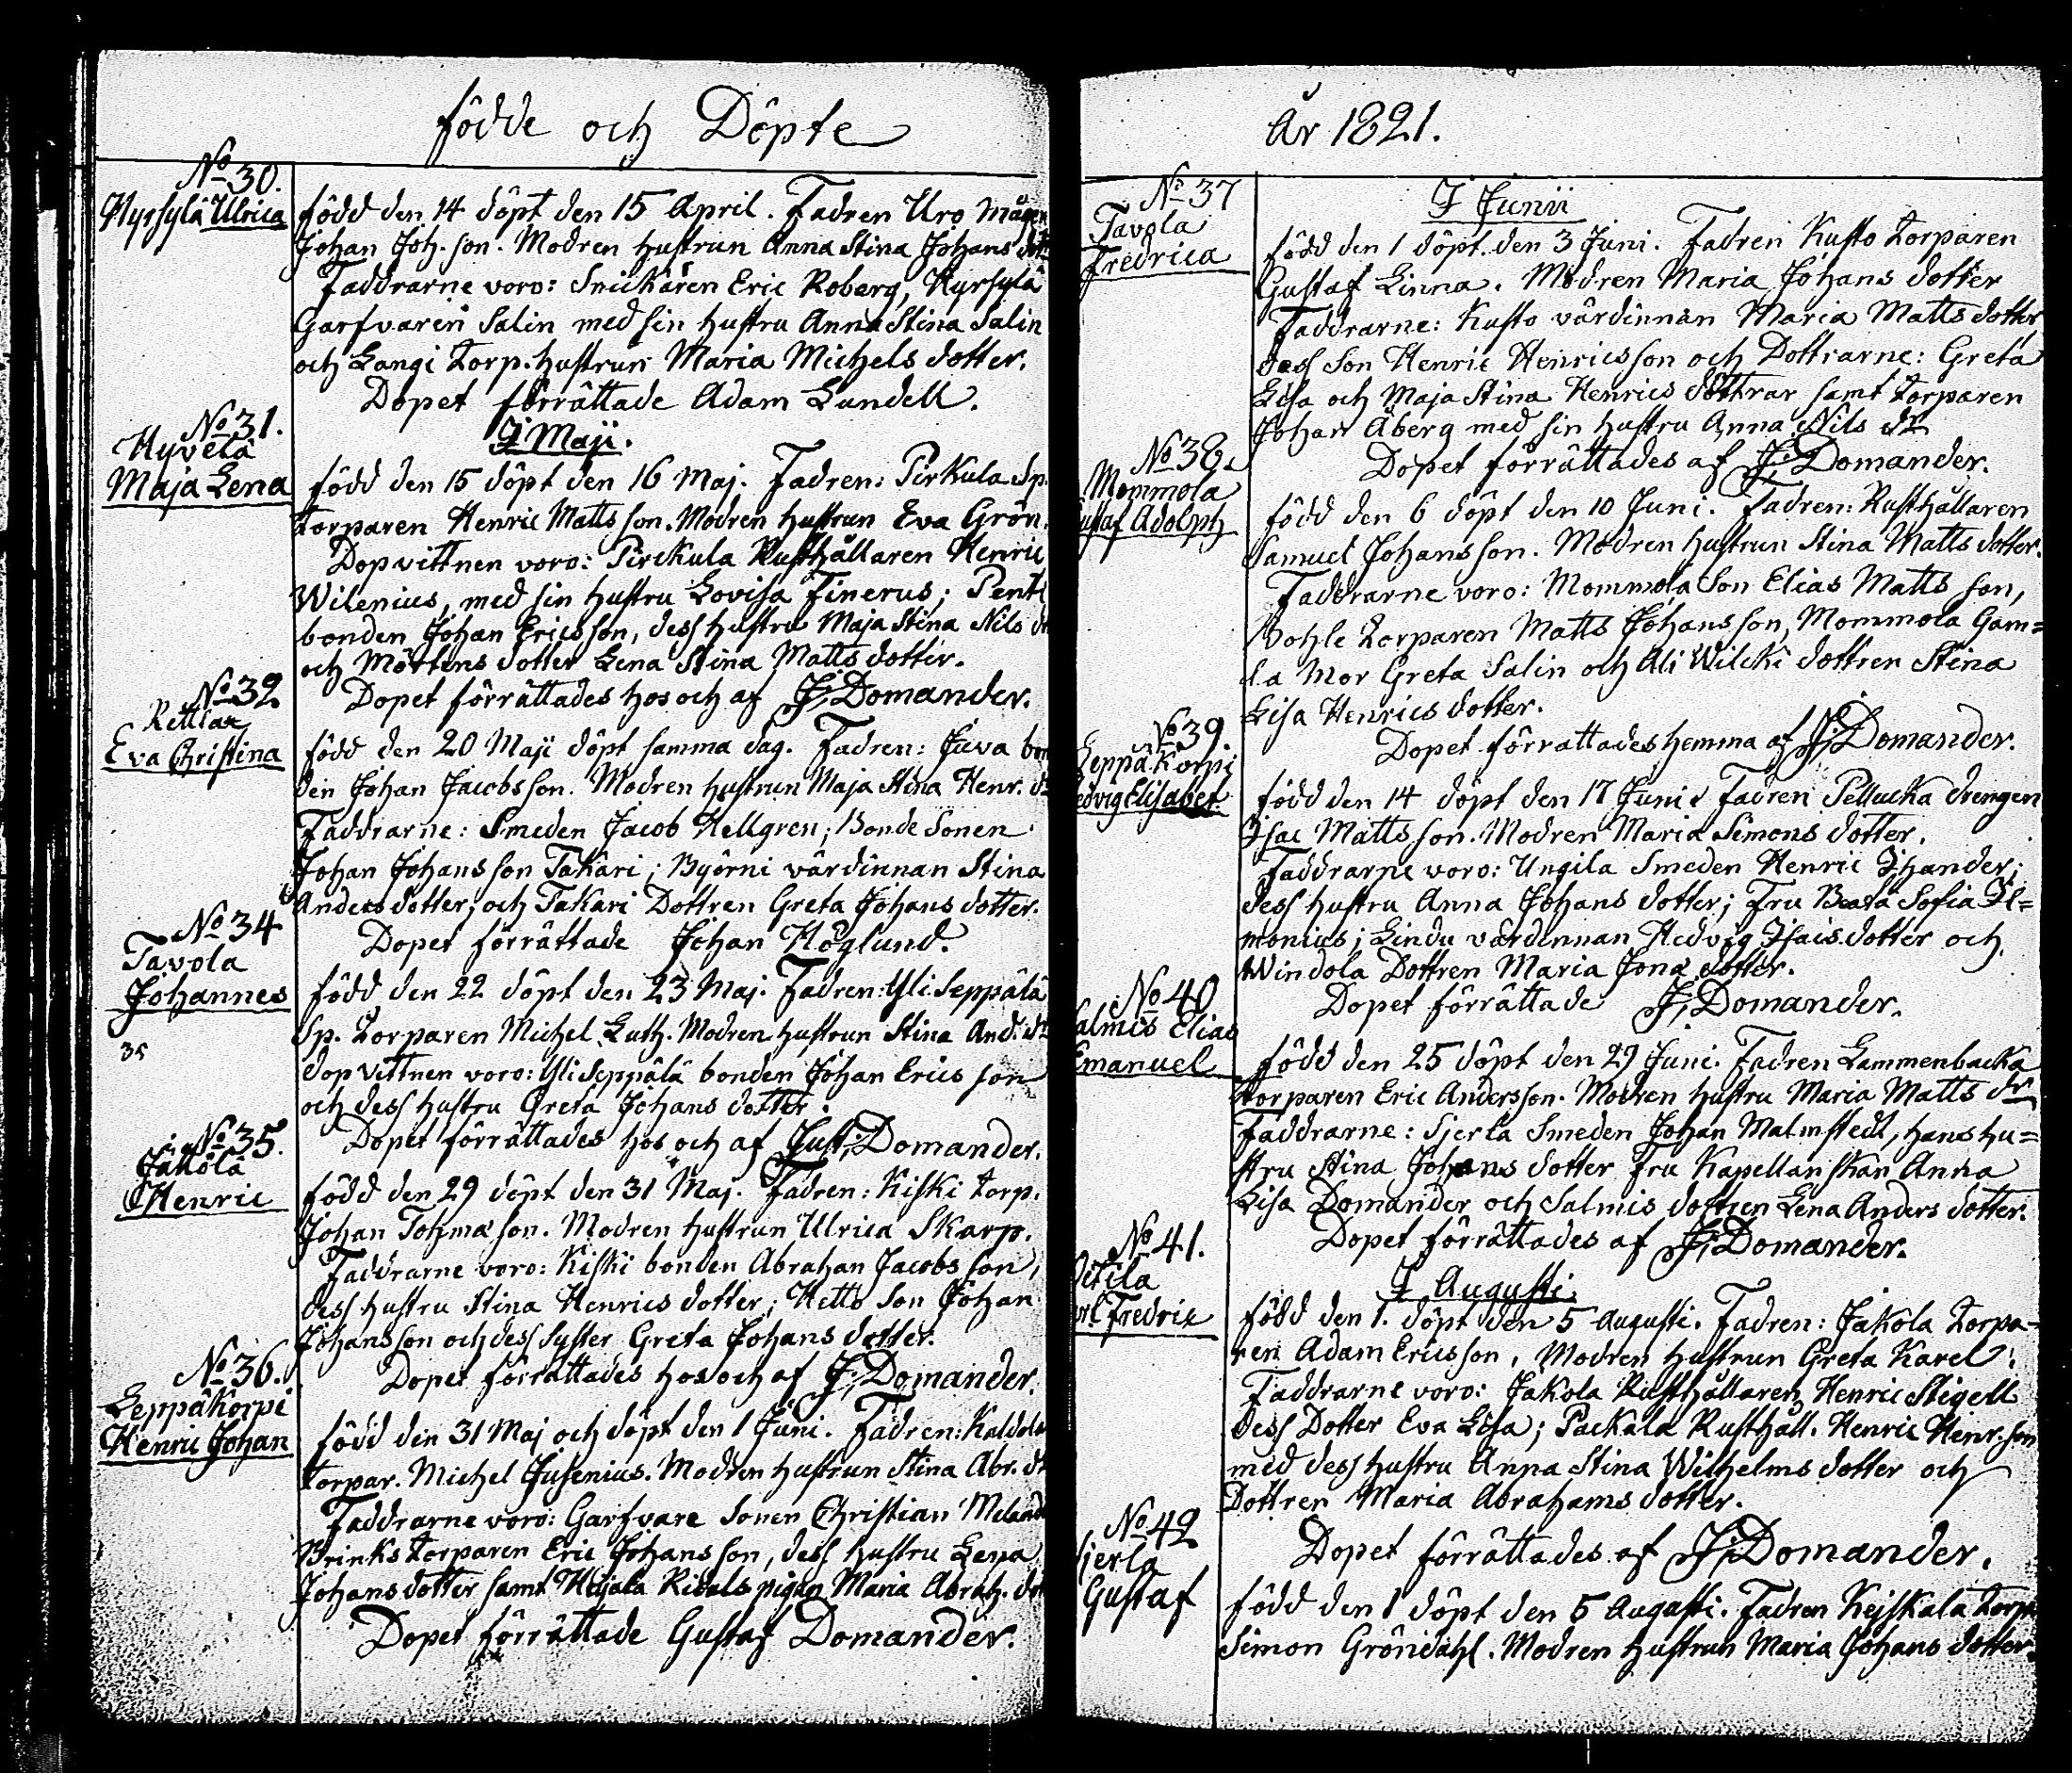 födde och Döpte
No 30.
Hyrsylä Ulrica
född den 14 döpt den 15 April. Fadren Uro mågen
Johan Joh. son. Modren hustrun Anna Stina Johans dotr
Faddrarne voro: Snickaren Eric Roberg, Hyrsylä
Garfvaren Salin med sin hustru Anna Stina Salin
och Langi torp. hustrun Maria Michels dotter.
Dopet förrättade Adam Lundell.
No 31.
Hyvelä
Maja Lena
I Maji.
född den 15 döpt den 16 Maj. Fadren: Pirkula Sp.
torparen Henric Matts son. Modren hustrun Eva Grön.
Dopvittnen voro: Pirckula Rusthållaren Henric
Wilenius, med sin hustru Lovisa Finerus; Pentt
bonden Johan Erics son, dess hustru Maja Stina Nils dr
och Mörtens dotter Lena Stina Matts dotter.
Dopet förrättades hos och af J. Domander.
No 32
Rettlax
Eva Christina
född den 20 Maji döpt samma dag. Fadren: Juva bon
den Johan Jacobsson. Modren hustrun Maja Stina Henr. dr
Faddrarne: Smeden Jacob Hellgren; Bonde Sonen
Johan Johansson Takari; Byörni värdinnan Stina
Anders dotter; och Takari Dottren Greta Johans dotter.
Dopet förrättade Johan Höglund.
No 34
Tavola
Johannes
född den 22 döpt den 23 Maj. Fadren: Yli Seppälä
Sp. torparen Michel Luth. Modren hustrun Stina And. dr
35
dopvittnen voro: Yli Seppälä bonden Johan Erics son
och dess hustru Greta Johans dotter.
Dopet förrättades hos och af Gust. Domander.
No 35.
Jakola
Henric
född den 29 döpt den 31 Maj. Fadren: Kiski torp.
Johan Tohma son. Modren hustrun Ulrica Skarp.
Faddrarne voro: Kiski bonden Abrahan Jacobs son,
dess hustru Stina Henrics dotter; Hetto Son Johan
Johansson och dess syster Greta Johans dotter.
Dopet förrättades hos och af J. Domander.
No 36.
Leppäkorpi
Henric Johan
född den 31 Maj och döpt den 1 Juni. Fadren: Kaldola
torpar. Michel Jusenius. Modren hustrun Stina Abr. dr
Faddrarne voro: Garfvare Sonen Christian Meland
Brinks torparen Eric Johansson, dess hustru Lena
Johans dotter samt Heijala Ridals pigan Maria Abrah. dr
Dopet förrättade Gustaf Domander.
År 1821.
No 37
Tavola
Fredrica
I Junii
född den 1 döpt den 3 Juni. Fadren Kusto torparen
Gustaf Linna. Modren Maria Johans dotter
Faddrarne: Kusto värdinnan Maria Matts dotter
dess son Henric Henricsson och Dottrarne: Greta
Lisa och Maja Stina Henrics döttrar samt torparen
Johan Åberg med sin hustru Anna Nils dr
Dopet förrättades af J. Domander.
No 38.
Mommola
ustaf Adolph
född den 6 döpt den 10 Juni. Fadren: Rusthållaren
Samuel Johansson. Modren hustrun Stina Matts dotter.
Faddrarne voro: Mommola Son Elias Matts son,
Bohle torparen Matts Johansson, Mommola Gam=
la Mor Greta Salin och Ali Wilcki dottren Stina
Lisa Henrics dotter.
Dopet förrättades hemma af J. Domander.
No 39.
Leppäkorpi
edvig Elisabet
född den 14 döpt den 17 Juni. Fadren Pellucka drengen
Isac Matts son. Modren Maria Simons dotter.
Faddrarne voro: Ungila Smeden Henric Ihander;
dess hustru Anna Johans dotter; Fru Beata Sofia Il=
monius; Lindu värdinnan Hedvig Isaisdotter och
Windola Dottren Maria Jona dotter.
Dopet förrättade J. Domander.
No 40
almis Elias
Emanuel
född den 25 döpt den 29 Juni. Fadren Lammenbacka
torparen Eric Andersson. Modren hustru Maria Matts dr
Faddrarne: Sjerla Smeden Johan Malmstedt, hans hu=
stru Stina Johans dotter Fru Kapellanskan Anna
Lisa Domander och Salmis dottren Lena Anders dotter.
Dopet förrättades af J. Domander.
No 41.
etila
arl Fredric
I Augusti.
född den 1. döpt den 5 Augusti. Fadren: Jakola torpa-
ren Adam Ericsson, Modren hustrun Greta Karel.
Faddrarne voro: Jakola Rusthållaren Henric Stigell
dess Dotter Eva Lisa; Packala Rusthåll. Henric Henr. son
med dess hustru Anna Stina Wilhelms dotter och
Dottren Maria Abrahams dotter.
Dopet förrättades af J. Domander.
No 42
Sjerla
Gustaf
född den 1 döpt den 5 Augusti. Fadren Kejskala torp.
Simon Gröndahl. Modren hustrun Maria Johans dotter.